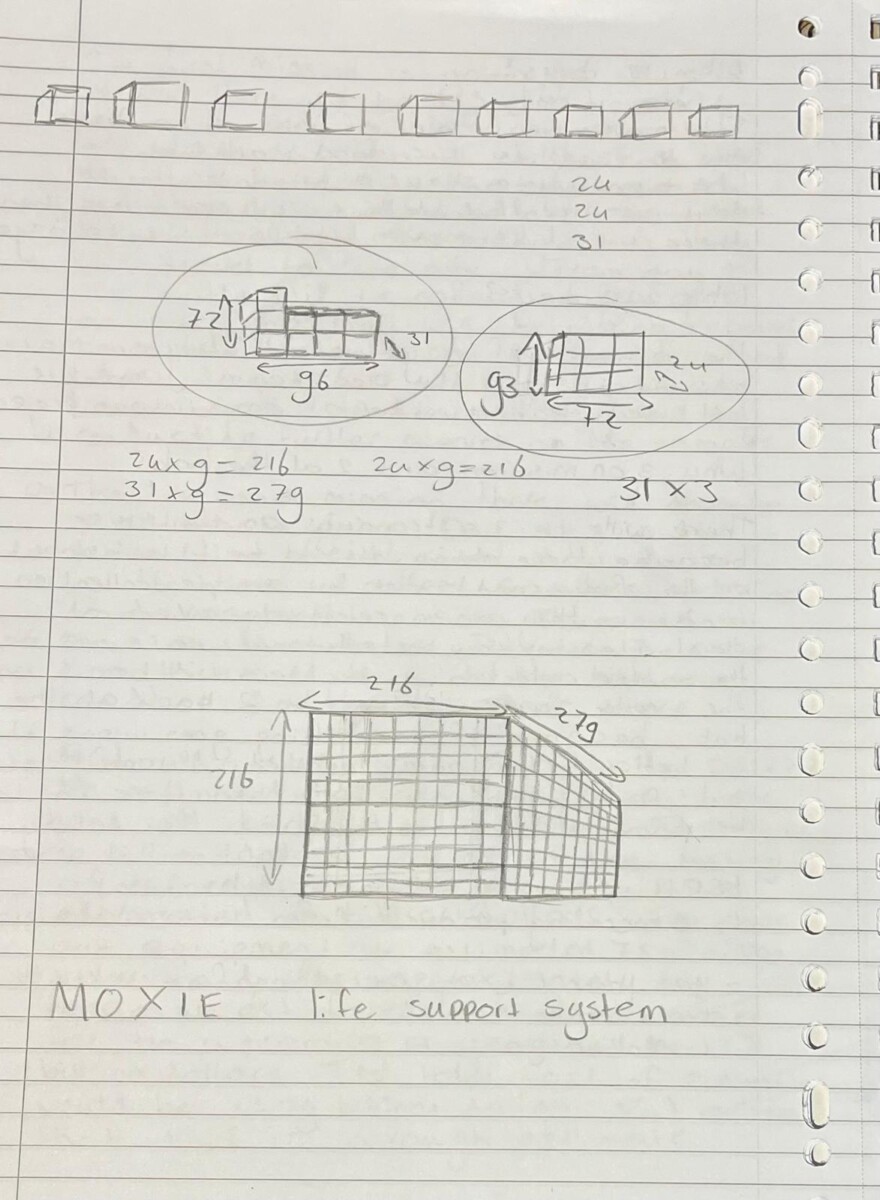 24
24
31
72
31
96
93
24
72
24 x 9 = 216
24 x 9 = 216
31 x 9 = 279
31 x 3
216
279
216
MOXIE life support system